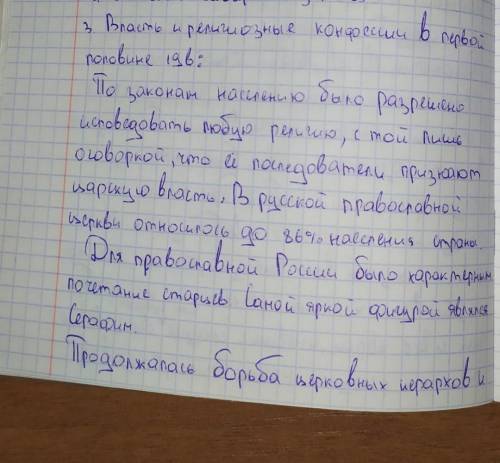 3 Власть и религиозные конфессии в первой
половине 19в:
По законам населению было разрешено
исповедовать любую религию, с той лишь
оговоркой, что её последователи признают
царскую власть. В русской православной
церкви относилось до 86% населения страны.
Для православной России было характерным
почетание старцев Самой яркой фигурой являлся
Серафим.
Продолжалась борьба церковных иерархов и